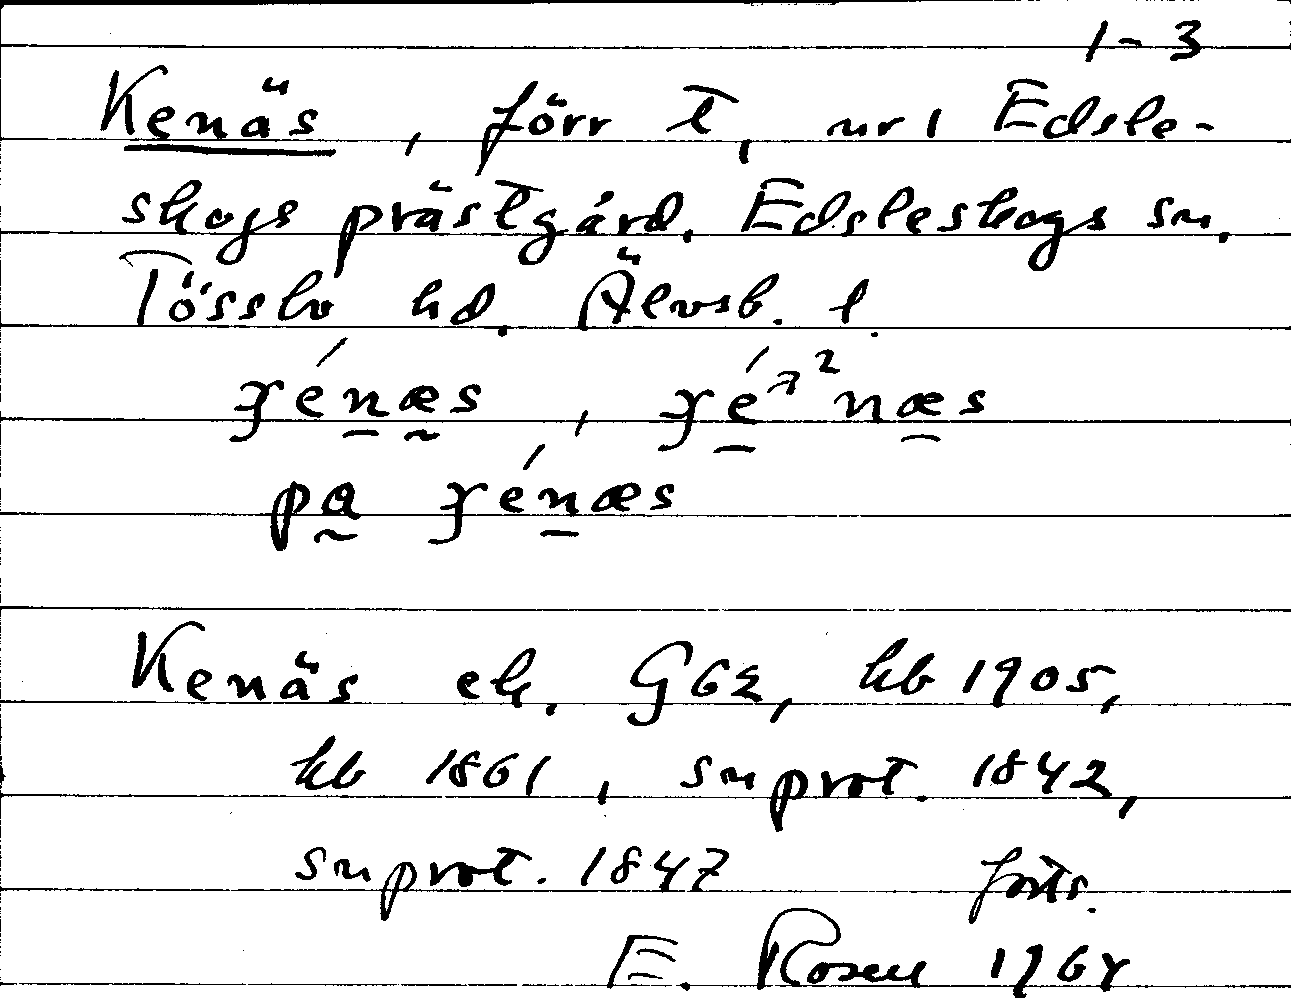 1-3
Kenäs, förr t, nr 1 Edsle-
skogs prästgård. Edsleskogs sn.
Tössbo hd. Älvsb. l.
ɟénæs, ɟé²næs
pa ɟénæs
Kenäs ek. Gbz, kb 1905,
kb 1861, snprot. 1842,
snprot. 1847 forts.
E. Rosen 1964